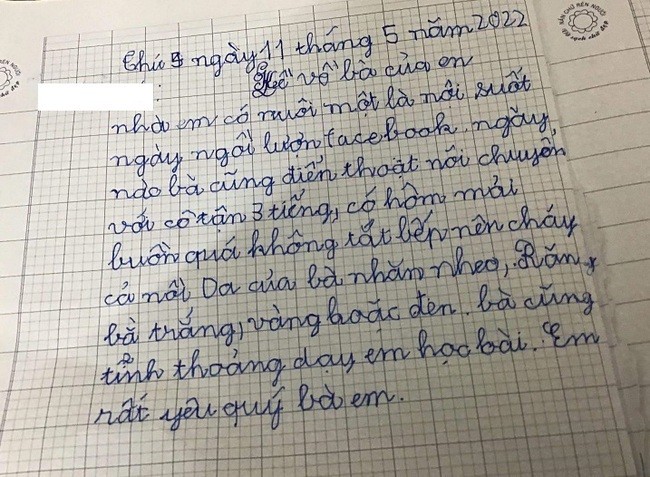 Thứ 5 ngày 11 tháng 5 năm 2022
Kể về bà của em
nhà em có nuôi một là nội suốt
ngày ngồi lướn facebook. ngày
nào bà cũng điển thoăt nói chuyện
với cô tận 3 tiếng, có hôm mải
buôn quá không tắt bếp nên cháy
cả nồi Da của bà nhăn nheo, Răng
bà trắng, vàng hoặc đen. bà cũng
tỉnh thoảng dạy em học bài. Em
rất yêu quý bà em.